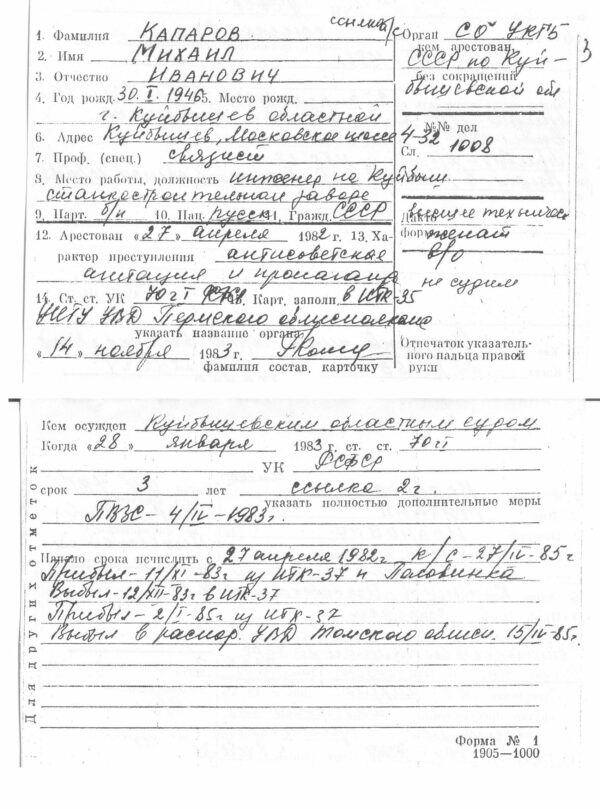 ссылка
1. Фамилия КАПАРОВ
2. Имя МИХАИЛ
3. Отчество ИВАНОВИЧ
4. Год рожд. 30. I. 1946 5. Место рожд.
г. Куйбышев областной
6. Адрес Куйбышев, Московское шоссе
7. Проф. (спец.) связист
8. Место работы, должность инженер на Куйбыш
станкостроительном заводе
9. Парт. б/п 10. Нац. русск 11. Гражд. СССР
12. Арестован «27» апреля 1982 г. 13. Ха-
рактер преступления антисоветская
агитация и пропаганда
14. Ст. ст. УК 70 ч I Карт. заполн. в ИТК-35
УИТУ УВД Пермского облисполкома
указать название органа
«14» ноября 1983 г.
фамилия состав. карточку
Орган СО УКГБ
кем арестован
СССР по Куй-
без сокращений
бышевской обл
№№ дел
4-32
Сл. 1008
высшее техническ
Дакт.
форм
женат
не судим
Отпечаток указатель-
ного пальца правой
руки
3
Кем осужден Куйбышевским областным судом
Когда «28» января 1983 г. ст. ст. 70 ч I
УК РСФСР
срок 3 лет ссылка 2 г.
указать полностью дополнительные меры
ПВЗС - 4/IV-1983г.
Начало срока исчислить с 27 апреля 1982г к/с - 27/IV-85г
Прибыл - 11/XI-83г из ИТК-37 п Половинка
Выбыл - 12/XII-83г в ИТК-37
Прибыл - 2/I-85г из ИТК-37
Выбыл в распор. УВД Томского облисп. 15/IV-85г.
Для других отметок
Форма № 1
1905—1000